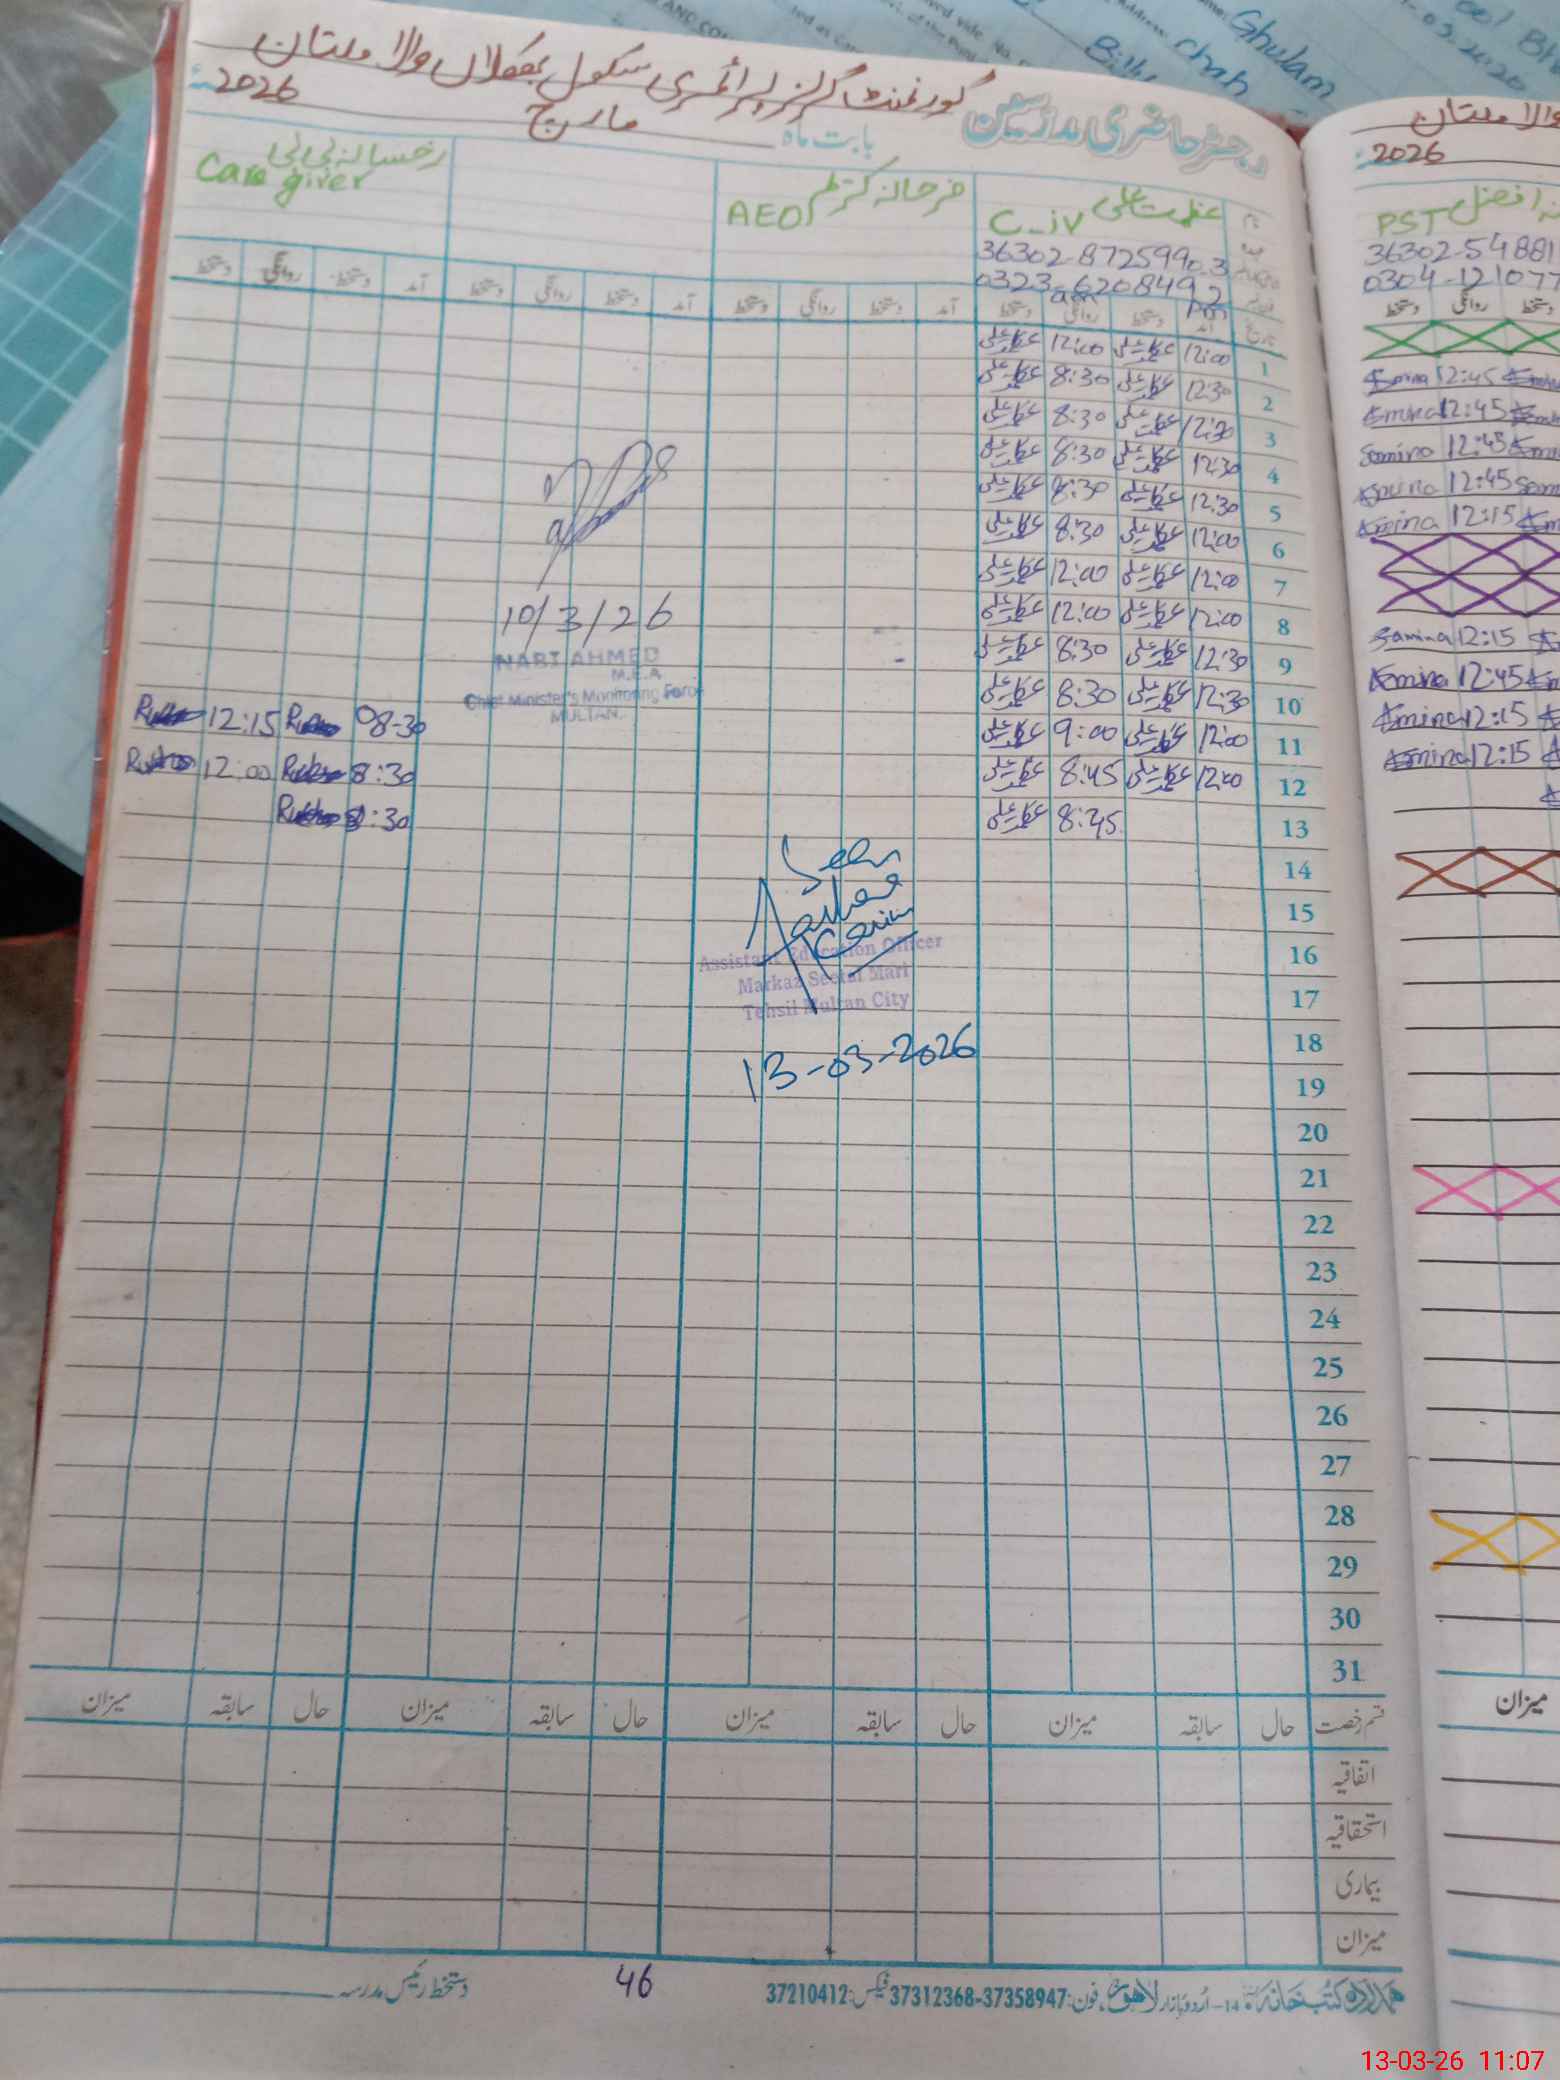 گورنمنٹ گرلز پرائمری سکول بھکلاں والا ملتان
رجسٹر حاضری مدرسین
بابت ماہ مارچ 2026ء
عظمت علی
C_iv
36302-8725990-3
0323-6208492
فرحانہ کریم
AEO
رخسانہ بی بی
Care giver
نام
تاریخ
pm am
آمد دستخط روانگی دستخط آمد دستخط روانگی دستخط آمد دستخط روانگی دستخط آمد دستخط روانگی دستخط
1 12:00 عظمت علی 12:00 عظمت علی
2 12:30 عظمت علی 8:30 عظمت علی
3 12:30 عظمت علی 8:30 عظمت علی
4 12:30 عظمت علی 8:30 عظمت علی
5 12:30 عظمت علی 8:30 عظمت علی
6 12:00 عظمت علی 8:30 عظمت علی
7 12:00 عظمت علی 12:00 عظمت علی
8 12:00 عظمت علی 12:00 عظمت علی
9 12:30 عظمت علی 8:30 عظمت علی
10 12:30 عظمت علی 8:30 عظمت علی
11 12:00 عظمت علی 9:00 عظمت علی 08-30 12:15
12 12:00 عظمت علی 8:45 عظمت علی 8:30 12:00
13 8:45 عظمت علی 8:30
14
15
16
17
18
19
20
21
22
23
24
25
26
27
28
29
30
31
10/3/26
AHMED
M.E.A
Chief Minister's Monitoring Force
MULTAN.
Seen
Assistant Education Officer
Markaz Mari
Tehsil Multan City
13-03-2026
قسم رخصت حال سابقہ میزان حال سابقہ میزان حال سابقہ میزان حال سابقہ میزان
اتفاقیہ
استحقاقیہ
بیماری
میزان
دستخط رئیس مدرسہ
46
کتب خانہ 14-اُردو بازار لاہور، فون: 37312368-37358947 فیکس: 37210412
والا ملتان
2026
افضل
PST
36302-54881
0304-121077
دستخط روانگی دستخط
Amina 12:45
Amina 12:45
Amina 12:45
Amina 12:45
Amina 12:15
Amina 12:15
Amina 12:45
Amina 12:15
Amina 12:15
میزان
Ghulam
13-03-26 11:07